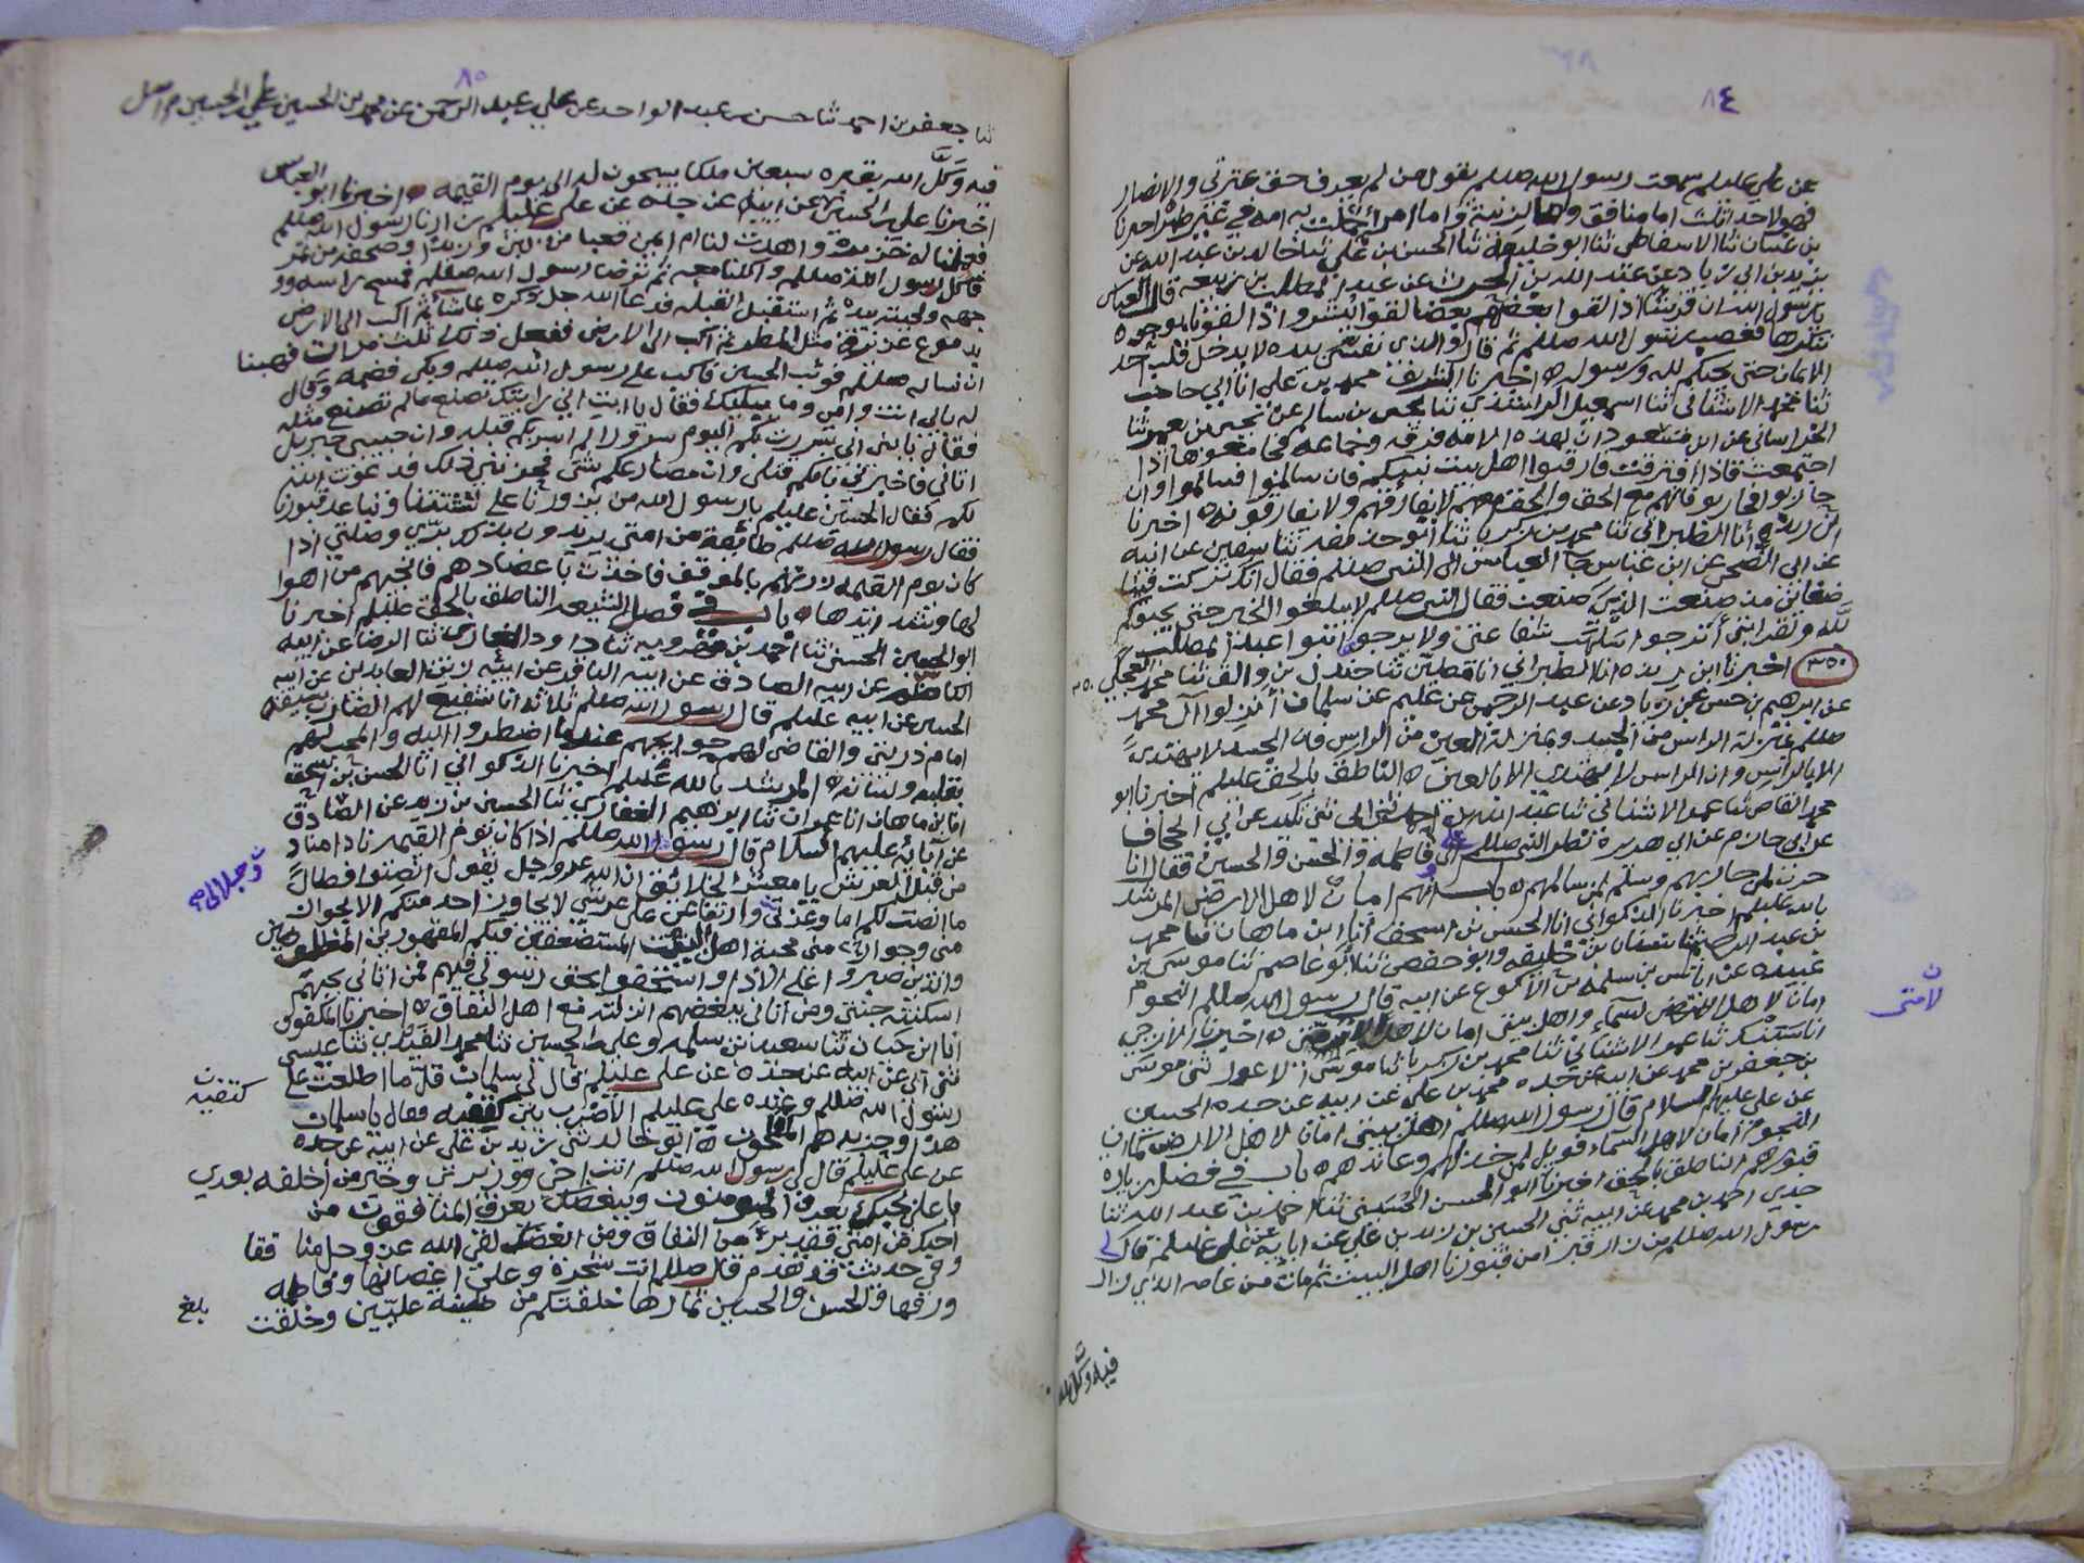 ٨٤
عن علي عليلم سمعت رسول الله صللم يقول من لم يعرف حق عترتي والانصار
فهو لاحد ثلث اما منافق واما لزنية واما امرؤ حملت به امه في غير طهر اخبرنا
بن غسان ثنا الاسفاطي ثنا ابو خليفة ثنا الحسن بن علي ثنا خالد بن عبد الله عن
يزيد بن ابي زياد عن عبد الله بن الحرث عن عبد المطلب بن ربيعة قال العباس
يا رسول الله ان قريشا اذا لقوا بعضهم بعضا لقوا ببشر واذا لقونا بوجوه
ننكرها فغضب رسول الله صللم ثم قال والذي نفسي بيده لا يدخل قلب احد
الايمان حتى يحبكم لله ورسوله ه اخبرنا الشريف محمد بن علي انا ابي حاجب
ثنا محمد الاشناني ثنا اسمعيل الراشدي ثنا يحيى بن سالم عن
الخراساني عن ابن مسعود ان لهذه الامة فرقة وجماعة فجامعوها اذا
اجتمعت فاذا افترقت فارقبوا اهل بيت نبيكم فان سالموا فسالموا وان
حاربوا فحاربوا فانهم مع الحق والحق معهم لا يفارقهم ولا يفارقونه ه اخبرنا
ابن ريذه انا الطبراني ثنا محمد بن زكريا ثنا ابو حذيفة ثنا سفين عن ابيه
عن ابي الضحى عن ابن عباس جا العباس الى النبي صللم فقال انك تركت فينا
ضغاين منذ صنعت الذي صنعت فقال النبي صللم لا يبلغوا الخير حتى يحبوكم
لله ولقرابتي أترجوا سلهب شفاعتي ولا يرجوا بنوا عبد المطلب
٣٥٠ اخبرنا ابن ريذه انا الطبراني ثنا جندل بن والق ثنا محمد العجلي
عن ابرهيم بن حسن عن زياد عن عبد الرحمن عن عليم عن سلمان أنزلوا آل محمد
صللم بمنزلة الراس من الجسد وبمنزلة العين من الراس فان الجسد لا يهتدي
الا بالراس وان الراس لا يهتدي الا بالعين ه الناطق بالحق عليلم اخبرنا ابو
محمد القاص ثنا عمر الاشناني ثنا عبد الله بن احمد ثني ابي ثني تليد عن ابي الجحاف
عن ابي حازم عن ابي هريرة نظر النبي صللم الى علي فاطمة والحسن والحسين فقال انا
حرب لمن حاربهم وسلم لمن سالمهم ه باب انهم امان لاهل الارض المرشد
بالله عليلم اخبرنا الذكواني انا الحسن بن اسحق أنا ابن ماهان ثنا محمد
بن عبد الله ثنا سفيان بن خليفه وابو حفص ثنا ابو عاصم ثنا موسى بن
عبيده عن اياس بن سلمه بن الاكوع عن ابيه قال رسول الله صللم النجوم
امان لاهل السماء واهل بيتي امان لاهل الارض ه اخبرنا الازجي
انا ثنا عمر الاشناني ثنا محمد بن زكريا ثنا موسى ثني موسى
بن جعفر بن محمد عن ابيه عن جده محمد بن علي عن ابيه عن جده الحسين
عن علي عليهم السلام قال رسول الله صللم اهل بيتي امان لاهل الارض كما ان
النجوم امان لاهل السماء فويل لمن خذلهم وعاندهم ه باب في فضل زيارة
قبورهم الناطق بالحق اخبرنا ابو الحسن الحسيني ثنا احمد بن عبد الله ثنا
جدي احمد بن محمد عن ابيه ثني الحسين بن زيد بن علي عن ابايه عن علي عليلم قال لي
رسول الله صللم من زار قبرا من قبورنا اهل البيت ثم مات من عامه الذي زار
فيه وكل الله
لامتي
٨٥
ثنا جعفر بن احمد ثنا حسن بن عبد الواحد عن علي بن عبد الرحمن عن محمد بن الحسين بن علي بن الحسين م اصل
فيه وَكَّل الله بقبره سبعين ملكا يسبحون له الى يوم القيمه ه اخبرنا ابو العباس
اخبرنا علي بن الحسين عن ابيه عن جده عن علي عليلم زارنا رسول الله صللم
فعملنا له خزيرة واهدت لنا ام ايمن قعبا من لبن وزبدا وصحفه من تمر
فاكل رسول الله صللم واكلنا معه ثم توضا رسول الله صللم فمسح راسه وو
جهه ولحيته بيده ثم استقبل القبله فدعا الله جل ذكره بما شا ثم اكب الى الارض
بدموع غزيرة مثل المطر ثم اكب الى الارض ففعل ذلك ثلث مرات فهبنا
ان نساله صللم فوثب الحسين فاكب على رسول الله صللم وبكى فضمه وقال
له بابي انت وامي وما يبكيك فقال يا ابت اني رايتك تصنع مالم تصنع مثله
فقال يا بني اني سررت بكم اليوم سرورا لم اسر بكم قبله وان حبيبي جبريل
اتاني فاخبرني بانكم قتلى وان مصارعكم شتى فحزنني ذلك فدعوت الله
لكم فقال الحسين عليلم يا رسول الله من يزورنا على تشتتنا ويتباعد قبورنا
فقال رسول الله صللم طايفة من امتي يريدون بذلك برّي وصلتي اذا
كان يوم القيمه زرتهم بالموقف فاخذت باعضادهم فانجيهم من اهوا
لها وشدايدها ه باب في فضل الشيعه الناطق بالحق عليلم اخبرنا
ابو الحسين الحسني ثنا احمد بن ثنا داود الغازي ثنا الرضا عن ابيه
الكاظم عن ابيه الصادق عن ابيه الباقر عن ابيه زين العابدين عن ابيه
الحسين عن ابيه عليلم قال رسول الله صللم ثلاثه انا شفيع لهم الضارب بسيفه
امام ذريتي والقاضي لهم حوايجهم عند ما اضطروا اليه والمحب لهم
بقلبه ولسانه ه المرشد بالله عليلم اخبرنا الذكواني انا الحسن بن اسحق
انا بن ماهان انا عمران ثنا ابرهيم الغفاري ثنا الحسين بن زيد عن الصادق
عن آبائه عليهم السلام قال رسول الله صللم اذا كان يوم القيمه نادا مناد
من قبل العرش يا معشر الخلايق ان الله عز وجل يقول انصتوا فطال
ما انصت لكم اما وعزتي وارتفاعي على عرشي لا يجاوز احد منكم الا بجواز
مني وجواز مني محبة اهل البيت المستضعفين فيكم المقهورين المظلومين
والذين صبروا على الاذا واستخفوا بحق رسولي فيهم فمن اتاني بحبهم
اسكنته جنتي ومن اتاني ببغضهم انزلته مع اهل النفاق ه اخبرنا المكفوف
انا ابن حبان ثنا سعيد بن سلمه وعلي بن الحسين ثنا محمد ثنا عيسى
ثني ابي عن ابيه عن جده عن علي عليلم قال لي سلمان قل ما اطلعت على
رسول الله صللم وعنده علي عليلم الا ضرب بين كتفيه فقال يا سلمان
هذا وحزبه هم المفلحون ه ابو خالد ثني زيد بن علي عن ابيه عن جده
عن علي عليلم قال لي رسول الله صللم انت اخي ووزيري وخير من اخلفه بعدي
يا علي بحبك يعرف المومنون وببغضك يعرف المنافقون من
احبك من امتي فقد برئ من النفاق ومن ابغضك لقي الله عز وجل منافقا
وفي حديث قد تقدم قال صللم انت شجرة وعلي اغصانها وفاطمه
ورقها والحسن والحسين ثمارها خلقتكم من طينة عليين وخلقت
وجلالي صح
كتفيه
بلغ